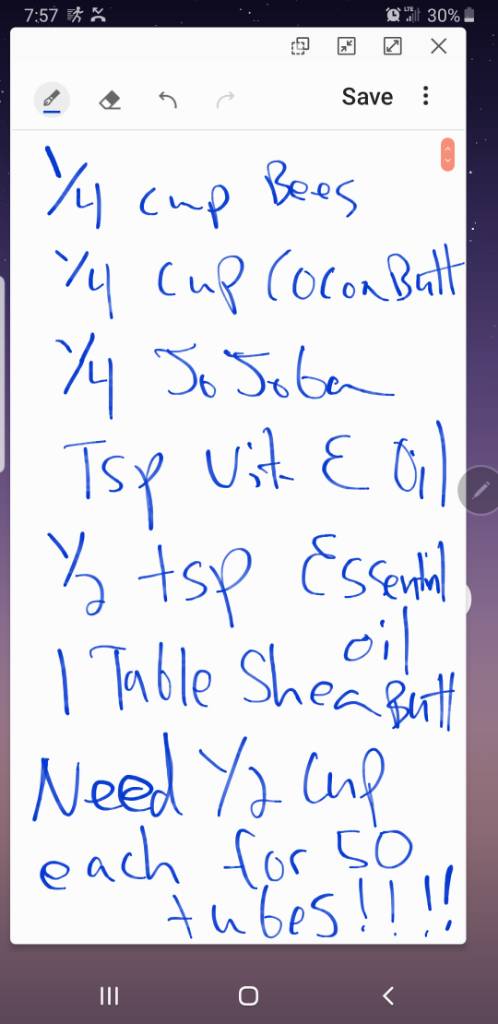 7:57 LTE 30%
Save
1/4 cup Bees
1/4 cup Cocoa Butt
1/4 JoJoba
Tsp Vit E Oil
1/2 tsp Essentinl
oil
1 Table Shea Butt
Need 1/2 Cup
each for 50
tubes!!!!